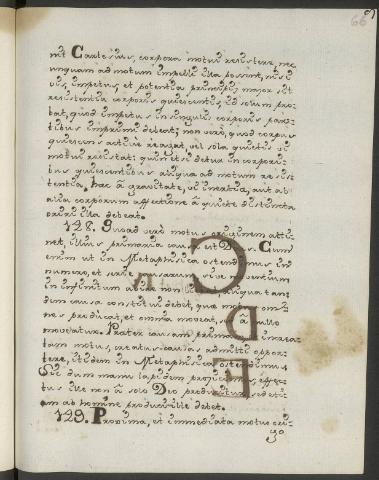 66
nit Cartesius, corpora motui resistere, nec
unquam ad motum impelli illa possint, nisi
vis, impetus, et potentia principii major sit
resistentia corporis quiescentis, id solum pro-
bat, quod impetus in singulis corporis part-
tibus imprimi debeat; non verò, quod corpus
quiescens active reagat, vel sola quietis vi
motui resistat: quin etsi detur in corpori-
bus quiescentibus aliqua ad motum resis-
tentia, hac à gravitate, vi inertiæ, aut ab
alia corporum affectione à quiete distincta
oriri illa debeat.
128. Quoad verò motus originem atti-
net, illius primaria causa est Deus. Cum
enim ut in Metaphysica ostendimus in
numero, et serie causarum, sive moventium
in infinitum abire non liceat, aliqua tan-
dem causa constitui debet, quæ motum om-
nes producat, et omnia moveat, à nullo
moveatur. Præter causam primam increa-
tam motus, creatas causas admitti opor-
tere, itidem in Metaphysica ostendimus,
Sic dum manu lapidem projicimus, effec-
tus ille non à solo Deo producitur, sed eti-
am ab homine produci ille debet.
129. Proxima, et immediata motus ori-
go
C
D
E